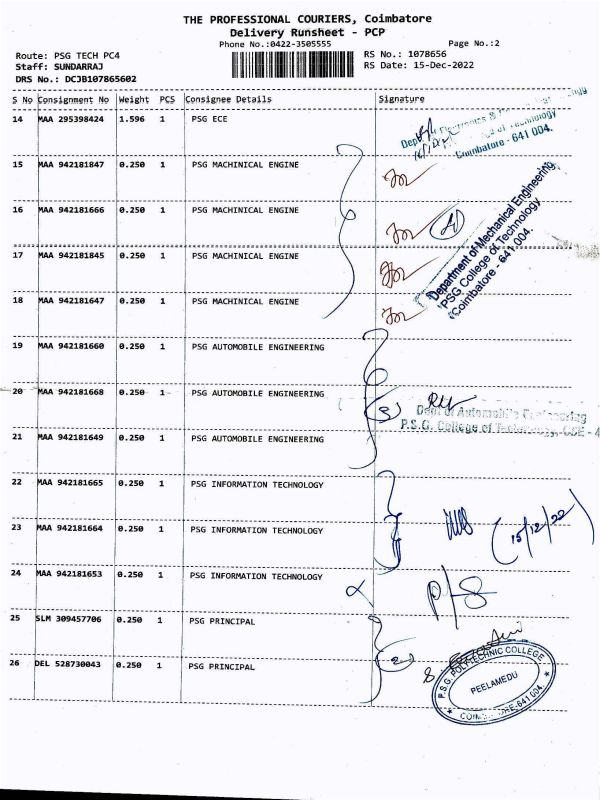 THE PROFESSIONAL COURIERS, Coimbatore
Delivery Runsheet - PCP
Phone No.:0422-3505555
Page No.:2
Route: PSG TECH PC4
RS No.: 1078656
Staff: SUNDARRAJ
RS Date: 15-Dec-2022
DRS No.: DCJB107865602
S No Consignment No Weight PCS Consignee Details Signature
14 MAA 295398424 1.596 1 PSG ECE
Coimbatore - 641 004.
15 MAA 942181847 0.250 1 PSG MACHINICAL ENGINE
16 MAA 942181666 0.250 1 PSG MACHINICAL ENGINE
(4)
17 MAA 942181845 0.250 1 PSG MACHINICAL ENGINE
Department of Mechanical Engineering
PSG College of Technology
Coimbatore - 641 004.
18 MAA 942181647 0.250 1 PSG MACHINICAL ENGINE
19 MAA 942181660 0.250 1 PSG AUTOMOBILE ENGINEERING
20 MAA 942181668 0.250 1 PSG AUTOMOBILE ENGINEERING
(3)
Dept of Automobile Engineering
P.S.G. College of Technology, CBE - 4
21 MAA 942181649 0.250 1 PSG AUTOMOBILE ENGINEERING
22 MAA 942181665 0.250 1 PSG INFORMATION TECHNOLOGY
23 MAA 942181664 0.250 1 PSG INFORMATION TECHNOLOGY
(15/12/22)
24 MAA 942181653 0.250 1 PSG INFORMATION TECHNOLOGY
25 SLM 309457706 0.250 1 PSG PRINCIPAL
26 DEL 528730043 0.250 1 PSG PRINCIPAL
(2)
P.S.G. POLYTECHNIC COLLEGE
PEELAMEDU
COIMBATORE-641 004.